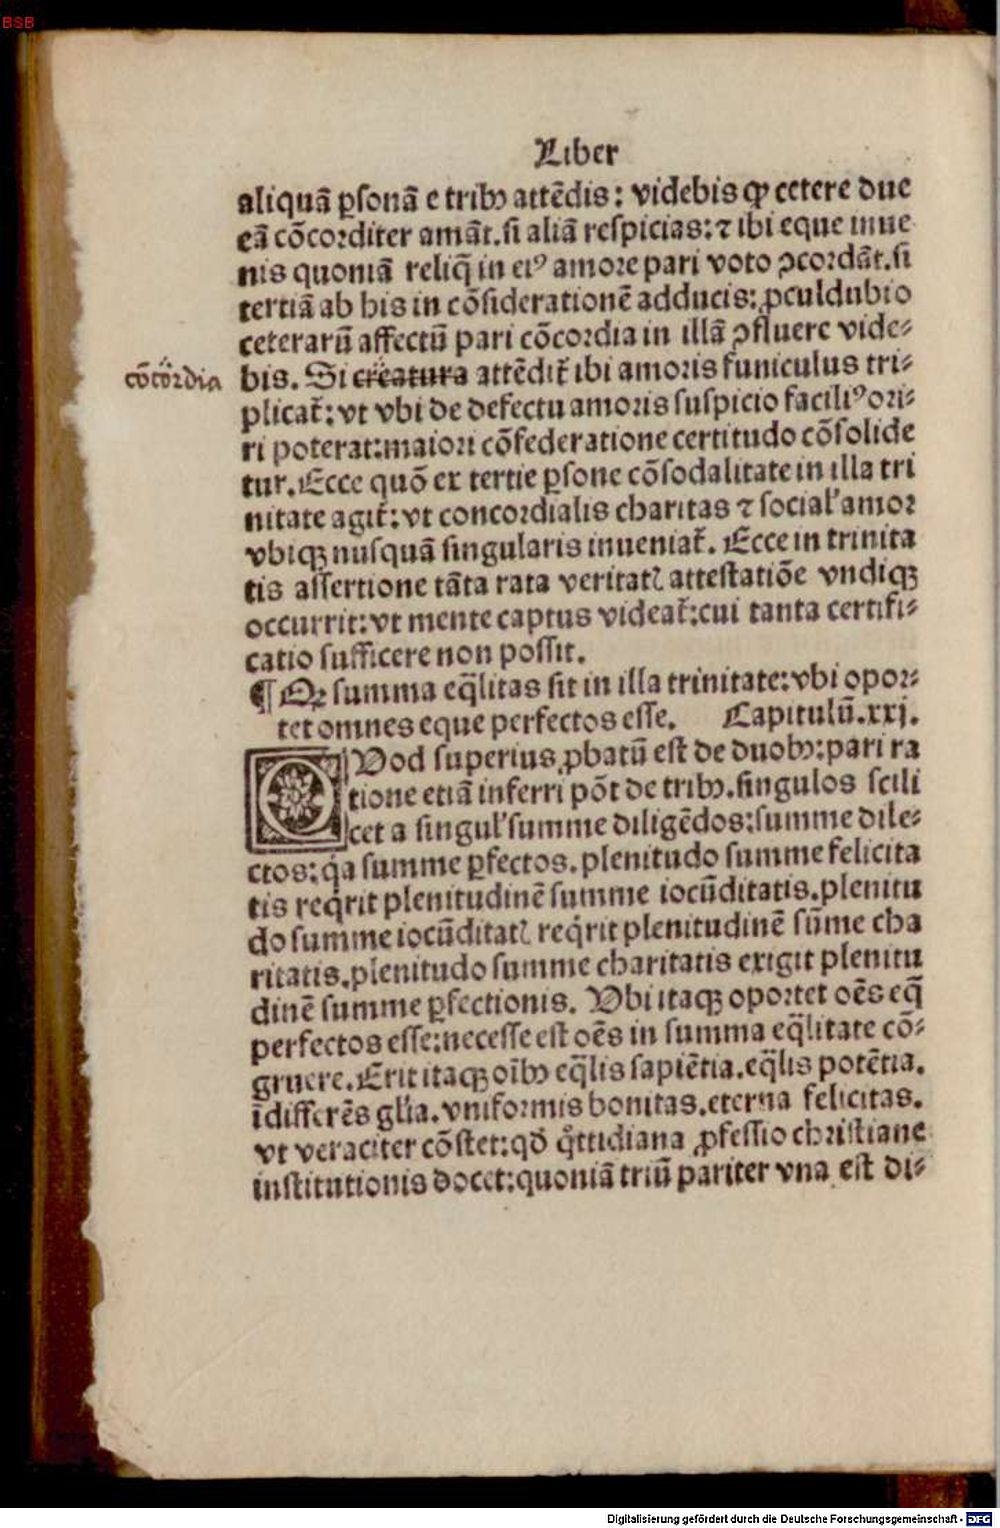 BSB
Liber
aliquã ꝑsonã e tribꝰ attẽdis: videbis ꝙ cetere due
eã cõcorditer amãt. si aliã respicias: ⁊ ibi eque inue
nis quoniã reliq̃ in eiꝰ amore pari voto ꝯcordãt. si
tertiã ab his in cõsiderationẽ adducis: ꝓculdubio
ceterarũ affectũ pari cõcordia in illã ꝯfluere vide⸗
cõcordia
bis. Si creatura attẽdit᷑ ibi amoris funiculus tri⸗
plicat᷑: vt vbi de defectu amoris suspicio faciliꝰ ori⸗
ri poterat: maiori cõfederatione certitudo cõsolide
tur. Ecce quõ ex tertie ꝑsone cõsodalitate in illa tri
nitate agit᷑: vt concordialis charitas ⁊ socialʼ amor
vbiqꝫ nusquã singularis inueniat᷑. Ecce in trinita
tis assertione tãta rata veritatꝭ attestatiõe vndiqꝫ
occurrit: vt mente captus videat᷑: cui tanta certifi⸗
catio sufficere non possit.
¶ Qꝫ summa eq̃litas sit in illa trinitate: vbi opor⸗
tet omnes eque perfectos esse. Capitulũ. xxj.
QVod superius ꝓbatũ est de duobꝰ: pari ra
tione etiã inferri põt de tribꝰ. singulos scili
cet a singulʼ summe diligẽdos: summe dile⸗
ctos: q̃a summe ꝑfectos. plenitudo summe felicita
tis reqͥrit plenitudinẽ summe iocũditatis. plenitu
do summe iocũditatꝭ reqͥrit plenitudinẽ sũme cha
ritatis. plenitudo summe charitatis exigit plenitu
dinẽ summe ꝑfectionis. Vbi itaqꝫ oportet oẽs eq̃
perfectos esse: necesse est oẽs in summa eq̃litate cõ⸗
gruere. Erit itaqꝫ oĩbꝰ eq̃lis sapiẽtia. eq̃lis potẽtia.
ĩdifferẽs glĩa. vniformis bonitas. eterna felicitas.
vt veraciter cõstet: qđ qͦttidiana ꝓfessio christiane
institutionis docet: quoniã triũ pariter vna est di⸗
Digitalisierung gefördert durch die Deutsche Forschungsgemeinschaft - DFG